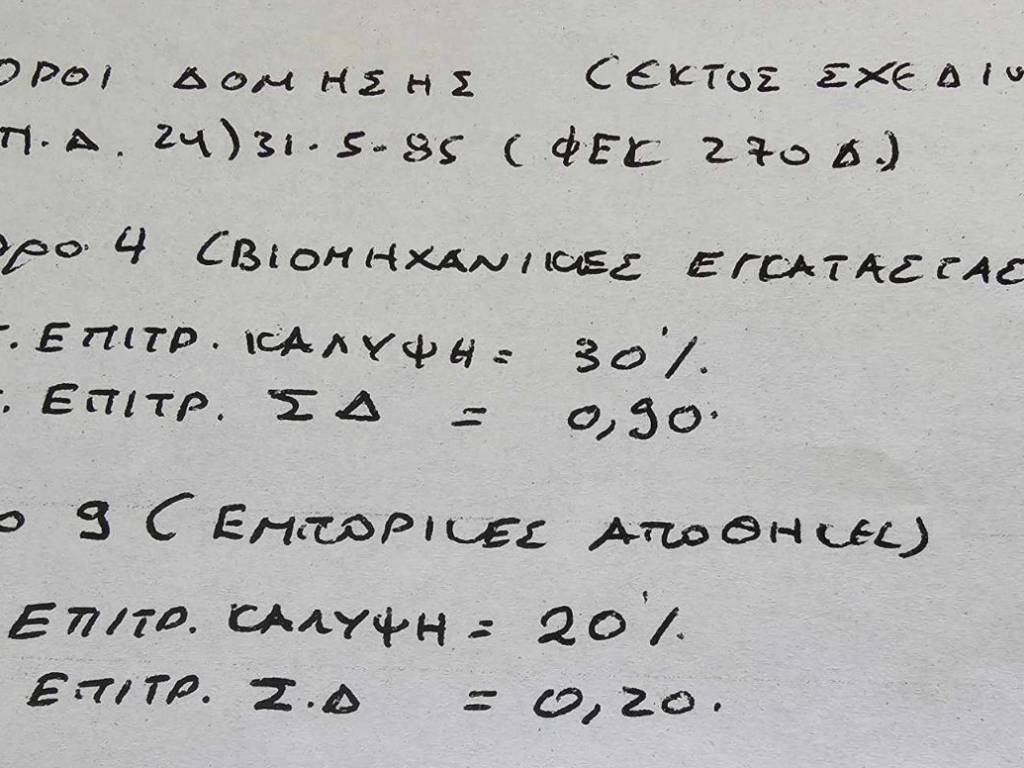 ΟΡΟΙ ΔΟΜΗΣΗΣ (ΕΚΤΟΣ ΣΧΕΔΙΟ
Π.Δ. 24)31-5-85 (ΦΕΚ 270 Δ.)
θρο 4 (ΒΙΟΜΗΧΑΝΙΚΕΣ ΕΓΚΑΤΑΣΤΑΣ
Γ. ΕΠΙΤΡ. ΚΑΛΥΨΗ = 30%.
Γ. ΕΠΙΤΡ. ΣΔ = 0,90.
ο 9 (ΕΜΠΟΡΙΚΕΣ ΑΠΟΘΗΚΕΣ)
ΕΠΙΤΡ. ΚΑΛΥΨΗ = 20%.
ΕΠΙΤΡ. Σ.Δ = 0,20.